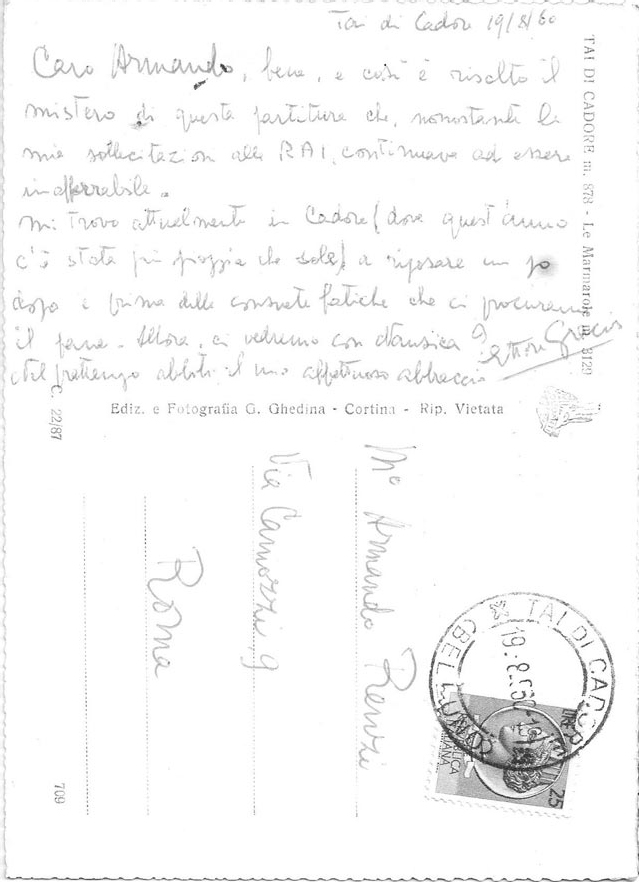 Tai di Cadore 19/8/60
Caro Armando, bene, e così è risolto il
mistero di questa partitura che, nonostante le
mie sollecitazioni alla RAI, continuava ad essere
inafferrabile.
Mi trovo attualmente in Cadore (dove quest'anno
c'è stata più pioggia che sole) a riposare un po'
dopo e prima delle consuete fatiche che ci procurano
il pane. Allora, ci vedremo con
Nel frattempo abbiti il mio affettuoso abbraccio
Ettore Gracis
TAI DI CADORE m. 878 - Le Marmarole m. 3129
Ediz. e Fotografia G. Ghedina - Cortina - Rip. Vietata
C. 22/87
Mo Armando Renzi
Via Camozzi, 9
Roma
709
TAI DI CADORE
(BELLUNO)
19.8.60
LIRE 25
ITALIANA